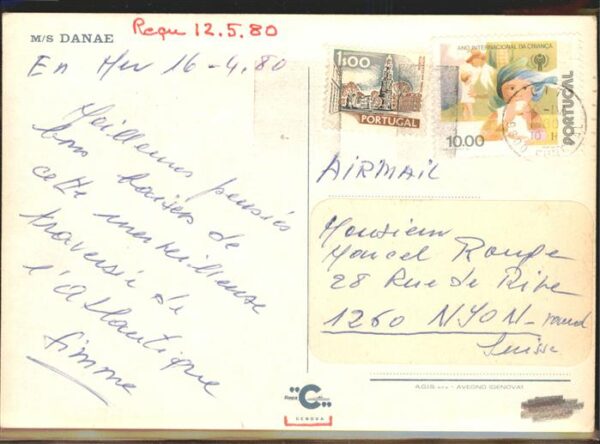 M/S DANAE
Reçu 12.5.80
En Mer 16-4.80
Meilleures pensées
bons baisers de
cette merveilleuse
traversée de
l'Atlantique
1$00
PORTUGAL
ANO INTERNACIONAL DA CRIANÇA
10.00
PORTUGAL
AIRMAIL
Monsieur
Marcel Rouge
28 Rue de Rive
1260 NYON-vaud
Suisse
A.G.I.S. s.r.l. - AVEGNO (GENOVA)
GENOVA